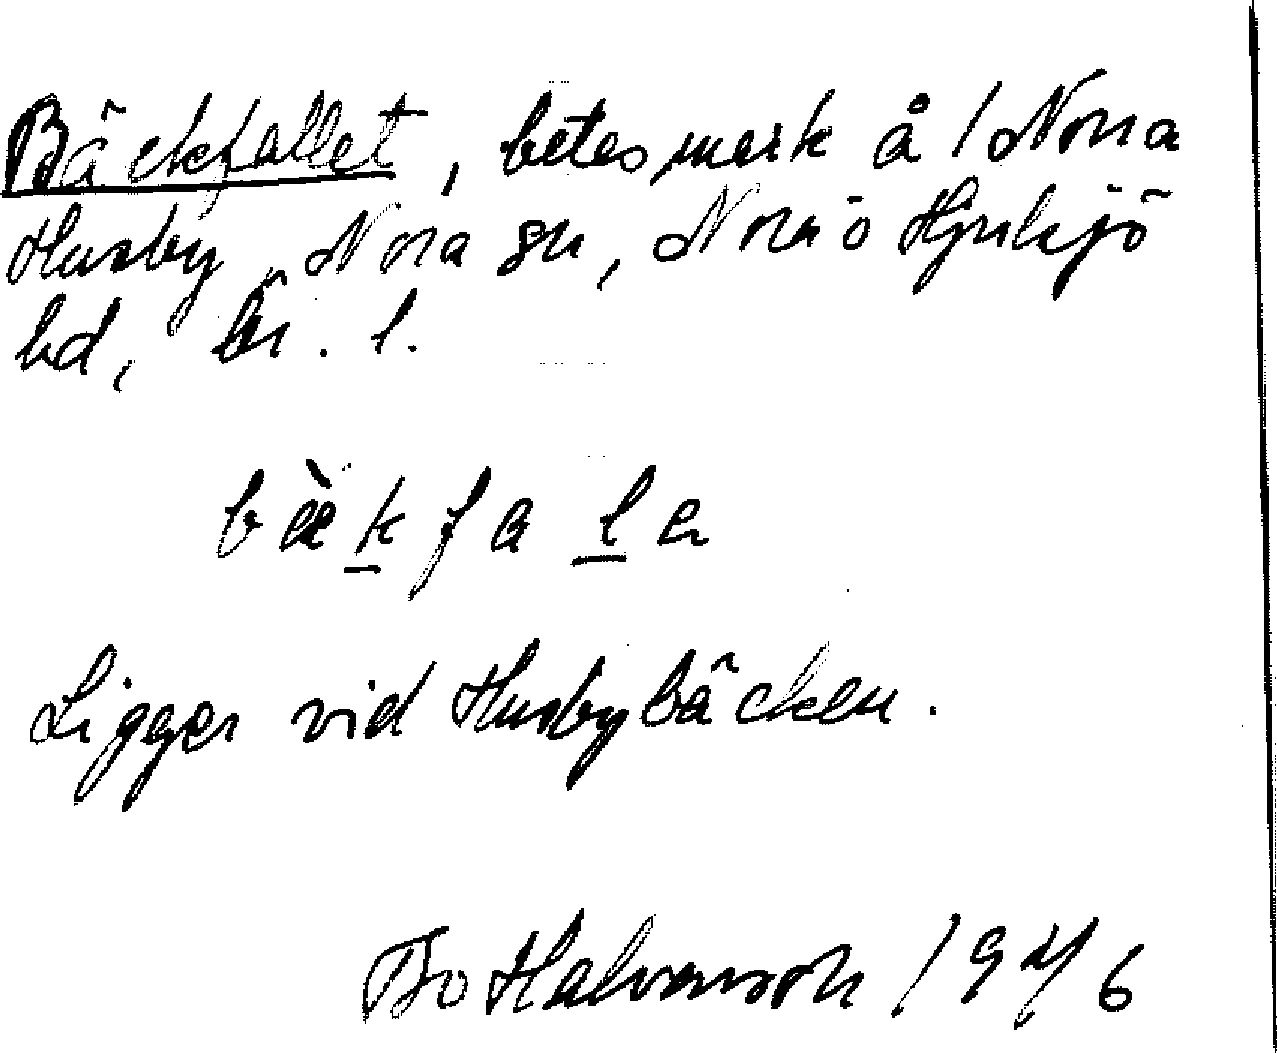 Bäckfallet, betesmark å / Norra
Husby, Nora sn, Nora o Hjulsjö
bd, Ör. l.
bæ̀kfala
Ligger vid Husbybäcken.
Bo Halvarson 1946